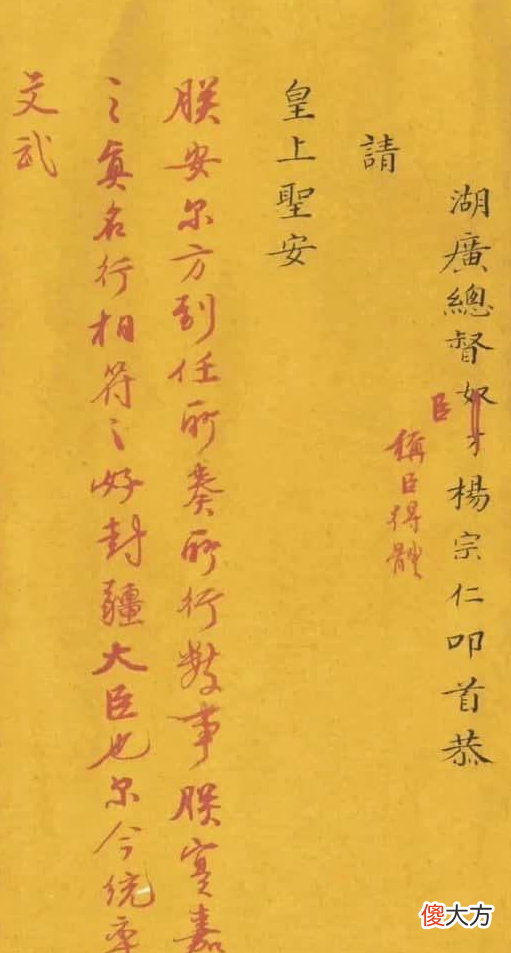 湖廣總督奴才楊宗仁叩首恭
臣
稱臣得體
請
皇上聖安
朕安尔方到任所奏所行數事朕實嘉
之真名行相符之好封疆大臣也尔今统率
文武
傻大方